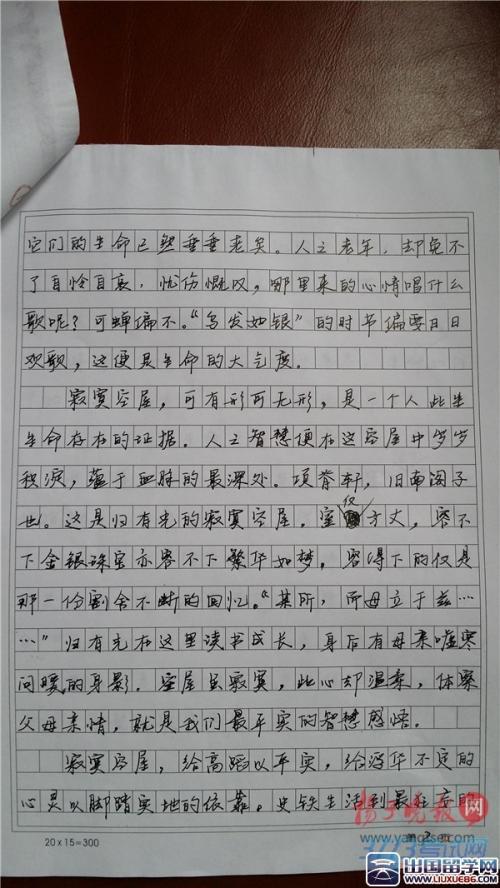 它们的生命已然垂垂老矣。人之老年，却免不
了自怜自哀，忧伤慨叹，哪里来的心情唱什么
歌呢？可蝉偏不。“乌发如银”的时节偏要日日
欢歌，这便是生命的大气度。
寂寞空屋，可有形可无形，是一个人此生
生命存在的证据。人之智慧便在这空屋中岁岁
积淀，蕴于血脉的最深处。项脊轩，旧南阁子
也。这是归有光的寂寞空屋。室仅方丈，容不
下金银珠宝亦容不下繁华如梦，容得下的仅是
那一份割舍不断的回忆。“某所，而母立于兹……
……”归有光在这里读书成长，身后有母亲嘘寒
问暖的身影。空屋虽寂寞，此心却温柔，体察
父母亲情，就是我们最平实的智慧感悟。
寂寞空屋，给高蹈以平实，给浮华不定的
心灵以脚踏实地的依靠。史铁生活到最狂妄的
20×15=300
扬子晚报网
出国留学网
WWW.LIUXUE86.COM